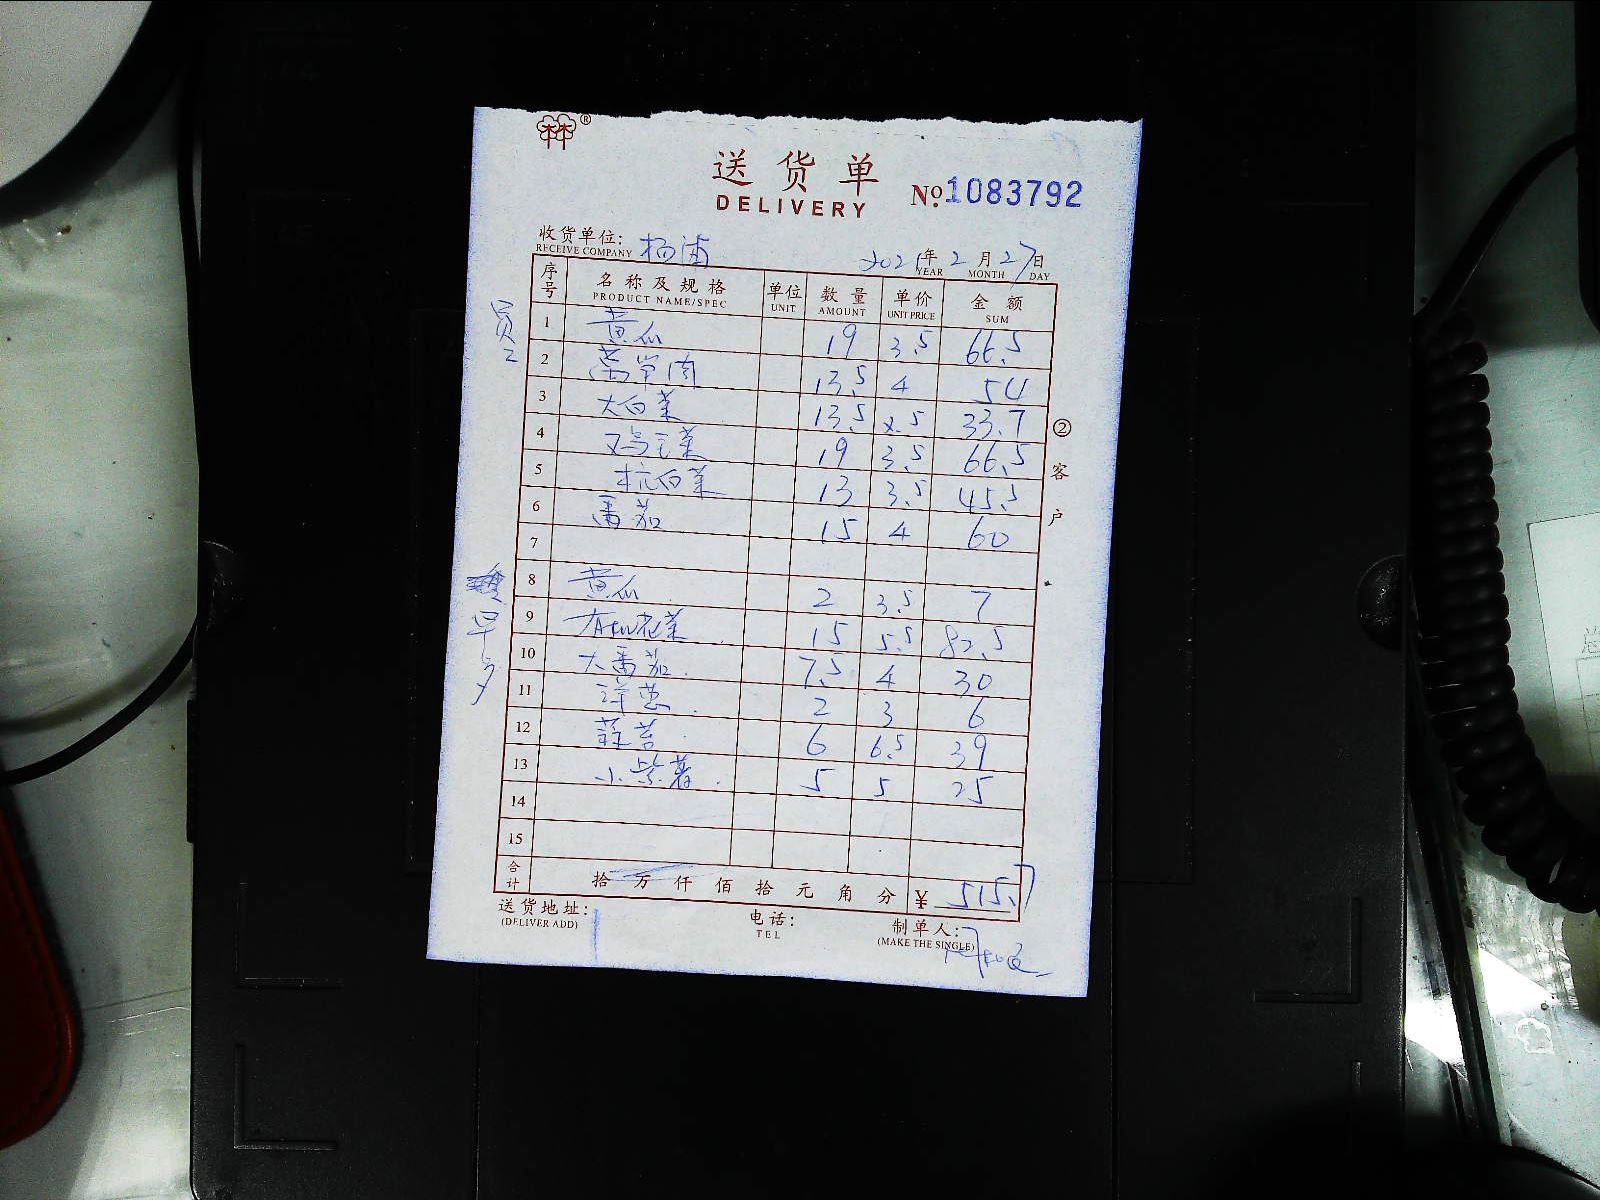 林®
送货单
DELIVERY
No. 1083792
收货单位: 杨浦 2021年2月27日
RECEIVE COMPANY YEAR MONTH DAY
序号 名称及规格 单位 数量 单价 金额
PRODUCT NAME/SPEC UNIT AMOUNT UNIT PRICE SUM
员工
1 黄瓜 19 3.5 66.5
2 莴笋肉 13.5 4 54
3 大白菜 13.5 2.5 33.7
4 鸡毛菜 19 3.5 66.5
5 杭白菜 13 3.5 45.5
6 番茄 15 4 60
7
②客户
早夕
8 黄瓜 2 3.5 7
9 有机花菜 15 5.5 82.5
10 大番茄 7.5 4 30
11 洋葱 2 3 6
12 蒜苔 6 6.5 39
13 小紫薯 5 5 25
14
15
合计 拾万仟佰拾元角分 ¥ 515.7
送货地址: 电话: 制单人:
(DELIVER ADD) TEL (MAKE THE SINGLE)